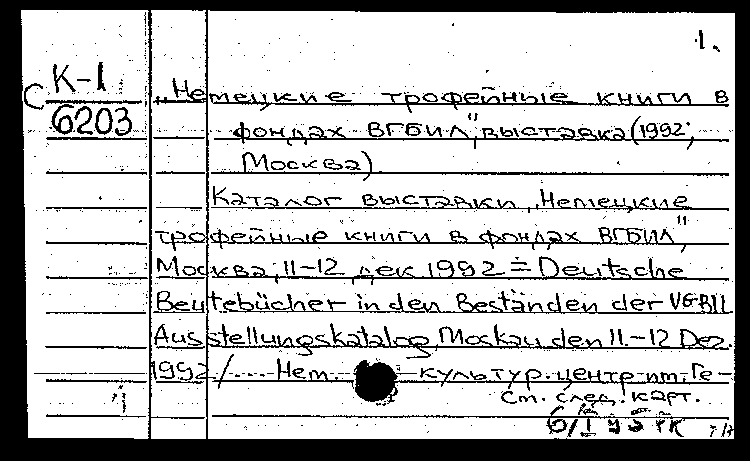 1.
С К-1
6203
„Немецкие трофейные книги в
фондах ВГБИЛ", выставка (1992;
Москва)
Каталог выставки „Немецкие
трофейные книги в фондах ВГБИЛ",
Москва, 11-12 дек 1992 = Deutsche
Beutebücher in den Beständen der VGBIL
Ausstellungskatalog, Moskau den 11.-12 Dez.
1992 / .... Нем. культур. центр им. Ге-
См. след. карт.